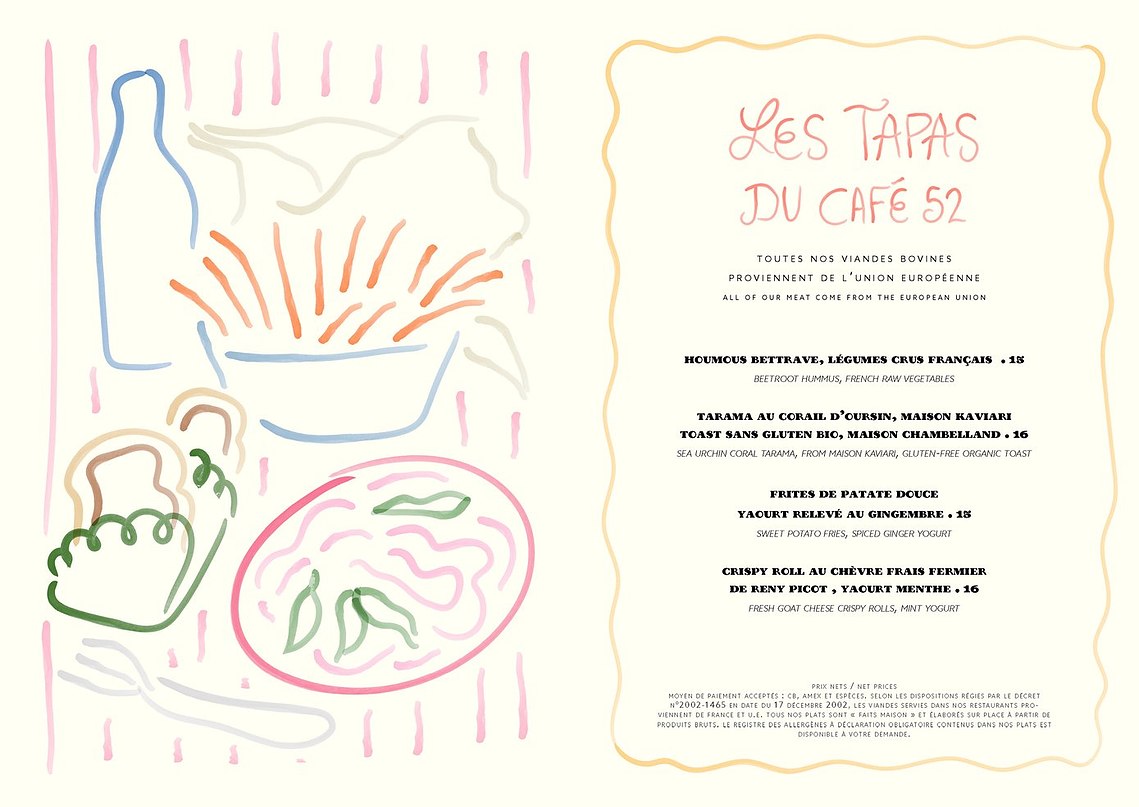 LES TAPAS
DU CAFÉ 52
TOUTES NOS VIANDES BOVINES
PROVIENNENT DE L'UNION EUROPÉENNE
ALL OF OUR MEAT COME FROM THE EUROPEAN UNION
HOUMOUS BETTRAVE, LÉGUMES CRUS FRANÇAIS . 15
BEETROOT HUMMUS, FRENCH RAW VEGETABLES
TARAMA AU CORAIL D'OURSIN, MAISON KAVIARI
TOAST SANS GLUTEN BIO, MAISON CHAMBELLAND . 16
SEA URCHIN CORAL TARAMA, FROM MAISON KAVIARI, GLUTEN-FREE ORGANIC TOAST
FRITES DE PATATE DOUCE
YAOURT RELEVÉ AU GINGEMBRE . 15
SWEET POTATO FRIES, SPICED GINGER YOGURT
CRISPY ROLL AU CHÈVRE FRAIS FERMIER
DE RENY PICOT , YAOURT MENTHE . 16
FRESH GOAT CHEESE CRISPY ROLLS, MINT YOGURT
PRIX NETS / NET PRICES
MOYEN DE PAIEMENT ACCEPTÉS : CB, AMEX ET ESPÈCES. SELON LES DISPOSITIONS RÉGIES PAR LE DÉCRET
N°2002-1465 EN DATE DU 17 DÉCEMBRE 2002, LES VIANDES SERVIES DANS NOS RESTAURANTS PRO-
VIENNENT DE FRANCE ET U.E. TOUS NOS PLATS SONT « FAITS MAISON » ET ÉLABORÉS SUR PLACE À PARTIR DE
PRODUITS BRUTS. LE REGISTRE DES ALLERGÈNES À DÉCLARATION OBLIGATOIRE CONTENUS DANS NOS PLATS EST
DISPONIBLE À VOTRE DEMANDE.